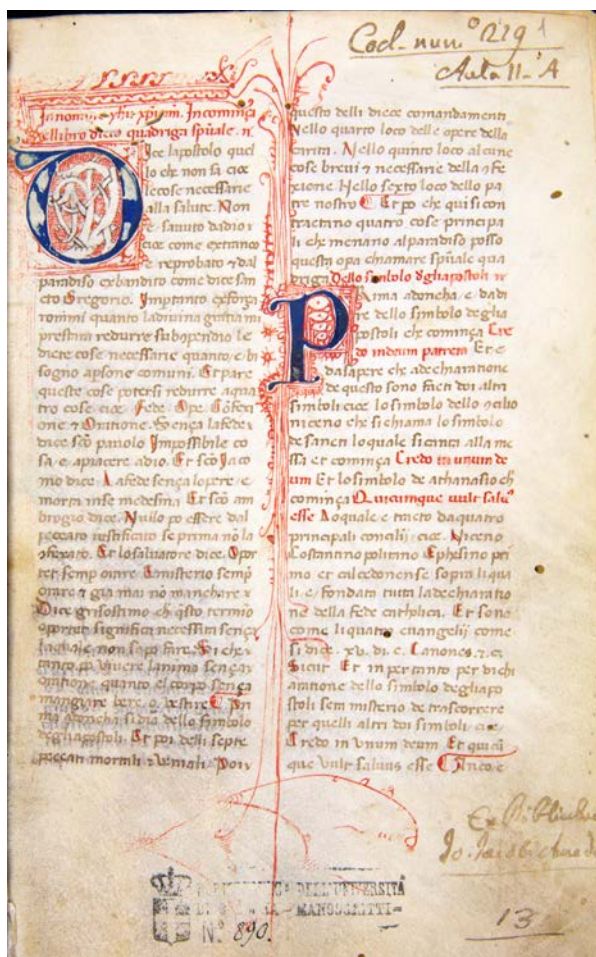 Cod. num.º 219 1
Aula II-A
In nomine yhu xpi am. Incominça
el libro dicto quadriga spũale. R.
Dice lapostolo quel
lo che non sa cioe
le cose necessarie
alla salute. Non
e sauuto da dio &
cioe come extraneo
e reprobato & dal
paradiso exbandito come dice san
cto Gregorio. Impertanto exforça
romi quanto la diuina gratia mi
prestara redurre sub
dicte cose necessarie quanto e bi
sogno a comuni. Et pare
queste cose potersi redurre a qua
tro cose cioe fede. Ope. Cõfexi
one & Oratione. Sença la fede
dice scõ paulo Impossibile co
sa e apiacere a dio. Et scõ Jaco
mo dice. La fede sença lopere e
morta in se medesma. Et scõ am
brogio dice. Nullo po essere dal
peccato iustificato se prima nõ la
cõfexato. Et lo saluatore dice. Opor
tet semp orare misterio semp
orare & gia mai nõ manchare &
Dice grisostimo ch q̃sto termio
oportet significa necessita sença
la quale non se po fare. Si che
tanto po viuere lanima sença
oratione quanto el corpo sença
mangiare bere o vestire Pri
ma adoncha si dia dello simbolo
degli apostoli. Et poi delli septe
peccati mortali & ueniali. Poi
questo delli diece comandamenti
Nello quarto loco delle opere della
carita. Nello quinto loco alcune
cose breui & necessarie della cõfe
xione. Nello sexto loco dello pa
tre nostro Et po che qui si con
tractano quatro cose principa
li che menano al paradiso posso
questa opa chiamare spũale qua
driga. Dello simbolo dgli apostoli R
Prima adoncha e da di
re dello simbolo degli a
postoli che comença Cre
do in deum patrem Et e
da sapere che a dechiaratione
de questo sono facti doi altri
simboli cioe lo simbolo dello cõcilio
niceno che si chiama lo simbolo
de sancti lo quale si canta alla me
ssa et comença Credo in unum de
um Et lo simbolo de athanasio ch
comença Quicumque uult saluꝰ
esse A o quale e tracto da quatro
principali concilii cioe. Niceno
Costantino politano Ephesino pri
mo et calcedonense sopra li qua
li e fondata tutta la dechiaratio
ne della fede catholica. Et sono
come li quatro euangelii come
si dice. xv. di. c. Canones. & c.
Sicut Et in per tanto per dichi
aratione dello simbolo degli apo
stoli sem misterio de trascorrere
per quelli altri doi simboli cioe
Credo in unum deum Et quicũ
que uult saluus esse
Ex Biblioth
Jo. Jacobi
DELL'UNIVERSITÀ
MANOSCRITTI
Nº 890.
13